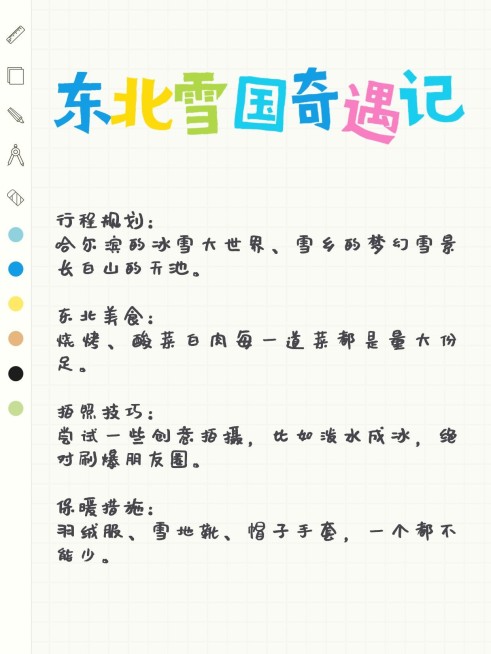 东北雪国奇遇记
行程规划：
哈尔滨的冰雪大世界、雪乡的梦幻雪景
长白山的天池。
东北美食：
烧烤、酸菜白肉每一道菜都是量大份
足。
拍照技巧：
尝试一些创意拍摄，比如泼水成冰，绝
对刷爆朋友圈。
保暖措施：
羽绒服、雪地靴、帽子手套，一个都不
能少。